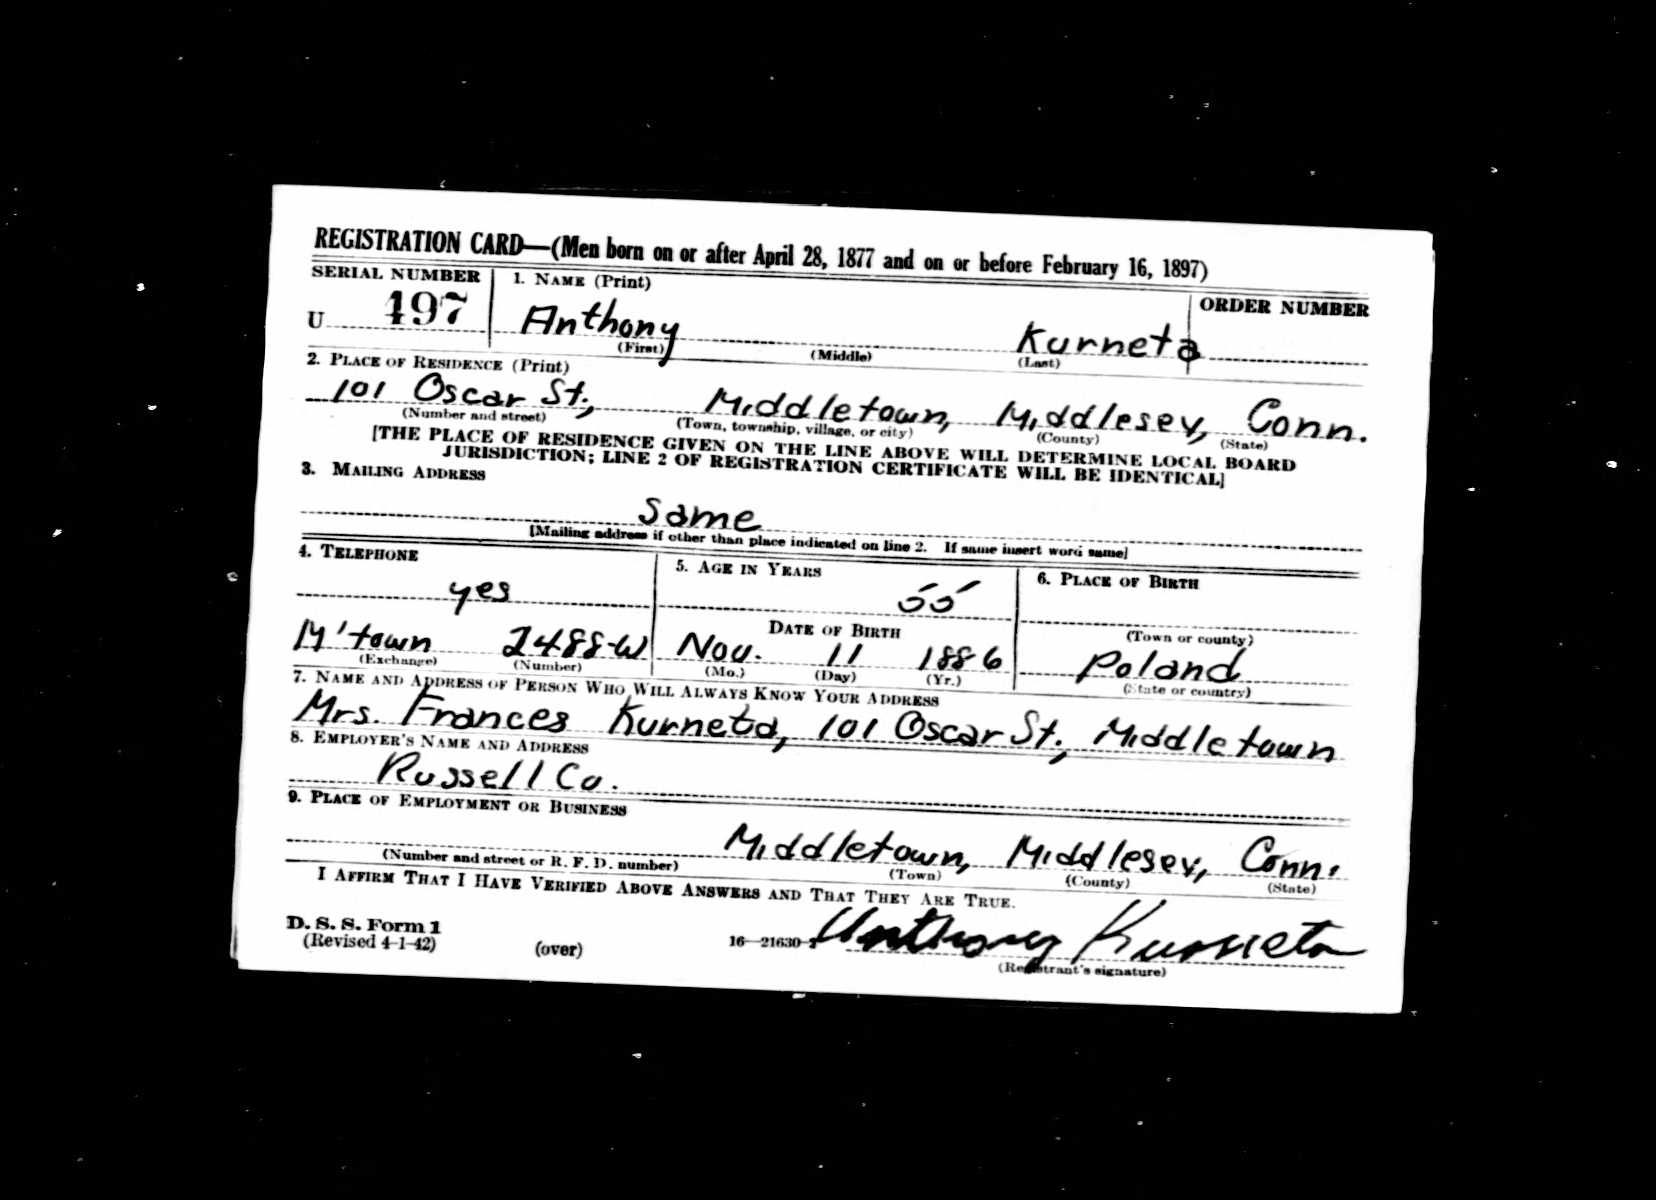 REGISTRATION CARD—(Men born on or after April 28, 1877 and on or before February 16, 1897)
SERIAL NUMBER 1. NAME (Print) ORDER NUMBER
U 497 Anthony Kurneta
(First) (Middle) (Last)
2. PLACE OF RESIDENCE (Print)
101 Oscar St., Middletown, Middlesex, Conn.
(Number and street) (Town, township, village, or city) (County) (State)
[THE PLACE OF RESIDENCE GIVEN ON THE LINE ABOVE WILL DETERMINE LOCAL BOARD
JURISDICTION; LINE 2 OF REGISTRATION CERTIFICATE WILL BE IDENTICAL]
3. MAILING ADDRESS
Same
[Mailing address if other than place indicated on line 2. If same insert word same]
4. TELEPHONE 5. AGE IN YEARS 6. PLACE OF BIRTH
yes 55
DATE OF BIRTH (Town or county)
M'town 2488-W Nov. 11 1886 Poland
(Exchange) (Number) (Mo.) (Day) (Yr.) (State or country)
7. NAME AND ADDRESS OF PERSON WHO WILL ALWAYS KNOW YOUR ADDRESS
Mrs. Frances Kurneta, 101 Oscar St., Middletown
8. EMPLOYER'S NAME AND ADDRESS
Russell Co.
9. PLACE OF EMPLOYMENT OR BUSINESS
Middletown, Middlesex, Conn.
(Number and street or R. F. D. number) (Town) (County) (State)
I AFFIRM THAT I HAVE VERIFIED ABOVE ANSWERS AND THAT THEY ARE TRUE.
D. S. S. Form 1
(Revised 4-1-42) (over) 16—21630-2 Anthony Kurneta
(Registrant's signature)